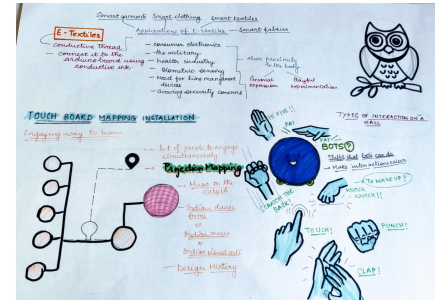 Smart garment Smart clothing smart textiles
E-Textiles
Applications of E-textiles
Smart fabrics
conductive thread
connect it to the
arduino board using
conductive ink
- consumer electronics
- the military
- health industry
- biometric sensing
- Need for
devices
- Growing security concerns
close proximity
to the body
Personal
expression
Playful
experimentation
TOUCH BOARD MAPPING INSTALLATION
Engaging way to learn
- Lot of people to engage
simultaneously
- Projection Mapping
- Music as the
output
- Indian dance
forms
or
Indian music
or
Indian visual arts
- Design History
TYPES OF INTERACTION ON A
WALL
HI FIVE!!
PAT
PAT
BOTS?
Stuffs that bots can do
- Make interaction easier
SCRATCH THE
BACK!
TO WAKE UP?
KNOCK
KNOCK!!
TOUCH!
PUNCH!
CLAP!